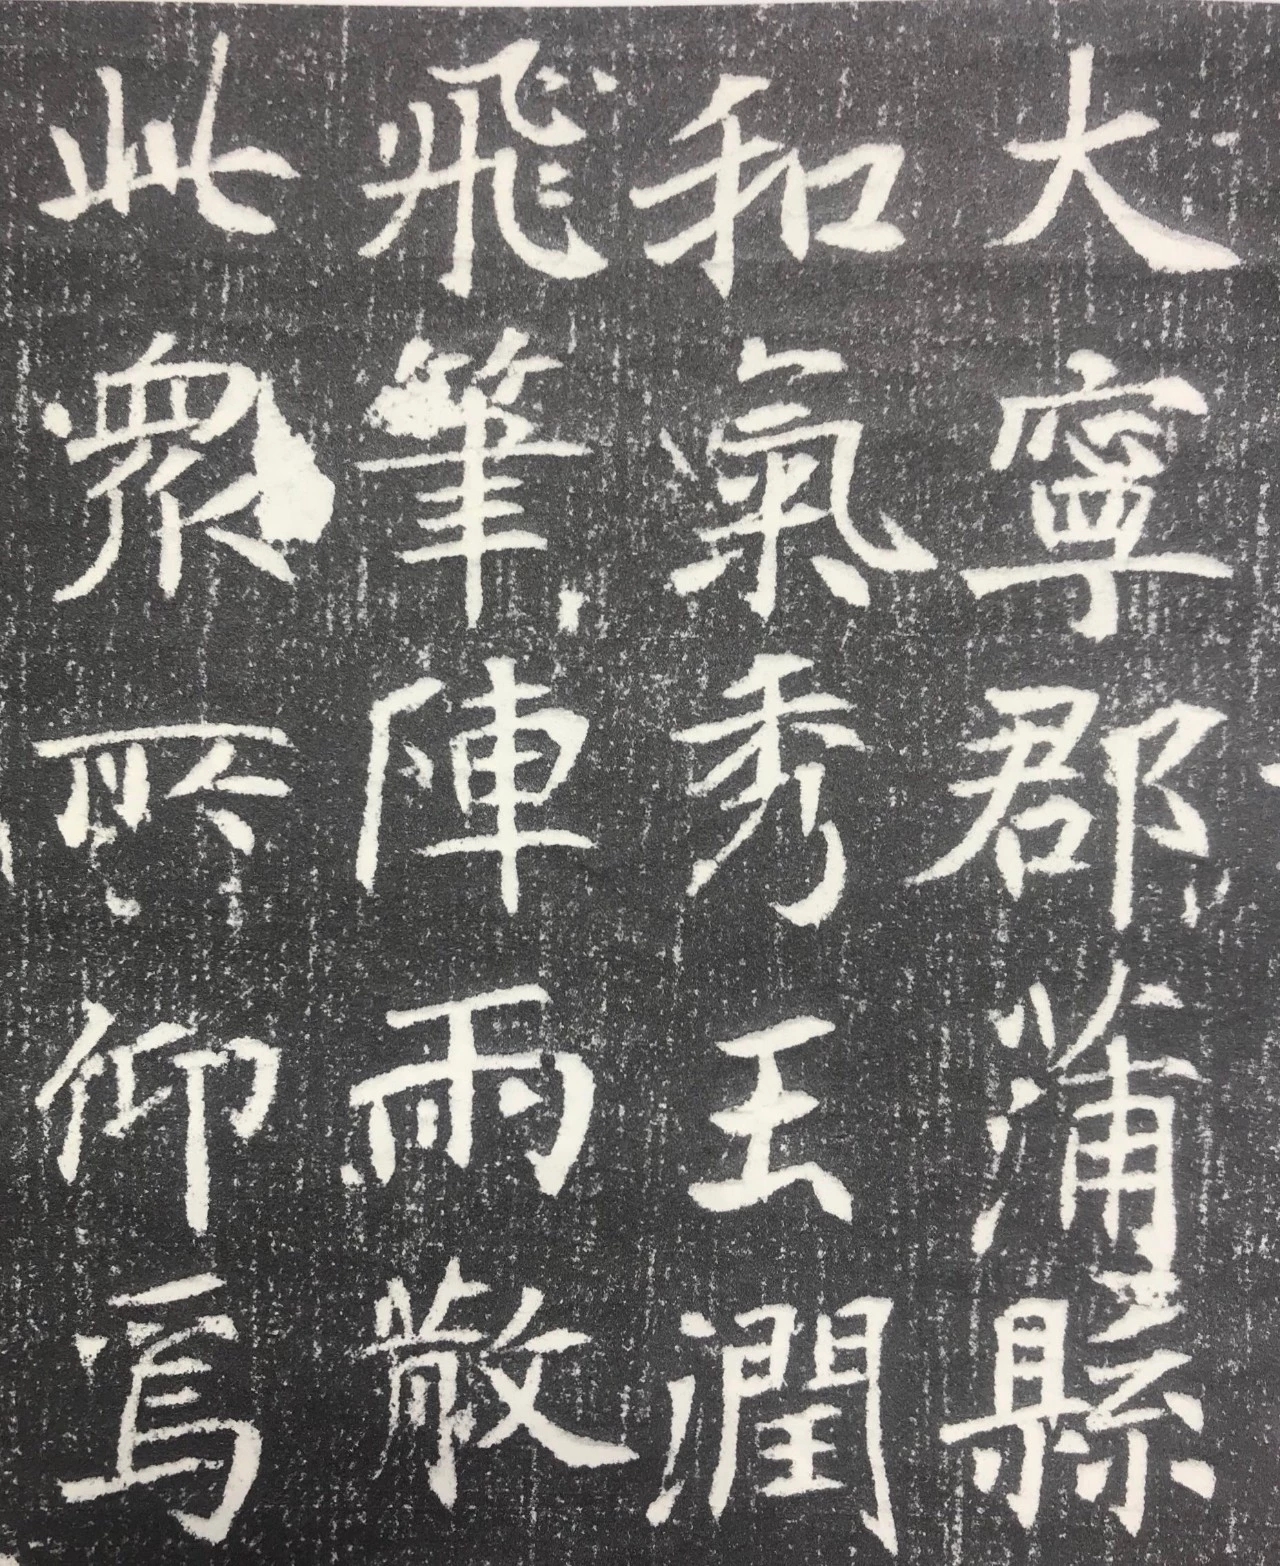 大寧郡蒲縣
和氣秀玉潤
飛筆陣雨散
此衆所仰焉